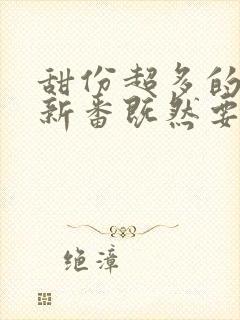 甜份超多的
新番既然要
绝漳